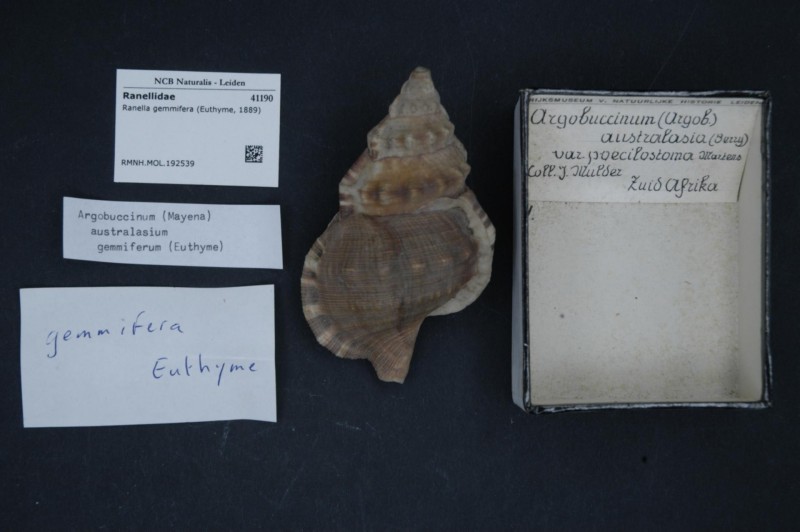 NCB Naturalis - Leiden
Ranellidae 41190
Ranella gemmifera (Euthyme, 1889)
RMNH.MOL.192539
Argobuccinum (Mayena)
australasium
gemmiferum (Euthyme)
gemmifera
Euthyme
RIJKSMUSEUM V. NATUURLIJKE HISTORIE LEIDEN
Argobuccinum (Argob.)
australasia (Perry)
var. poecilostoma Martens
Coll. J. Mulder
Zuid Afrika
1.